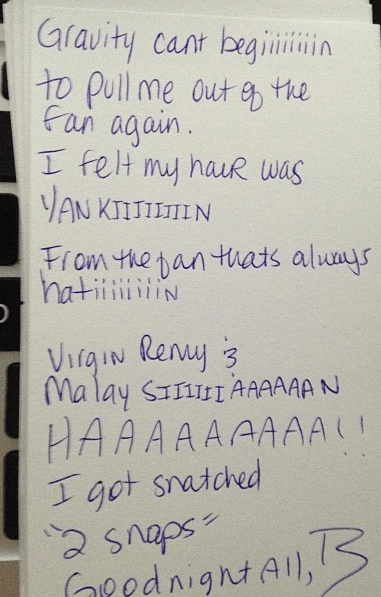 Gravity cant begiiiiiiiin
to pull me out of the
fan again.
I felt my hair was
YANKIIIIIIIIN
From the fan thats always
hatiiiiiiiiiN
Virgin Remy &
Malay SIIIIIIAAAAAAN
HAAAAAAAAAA!!
I got snatched
"2 snaps"
Goodnight All, B